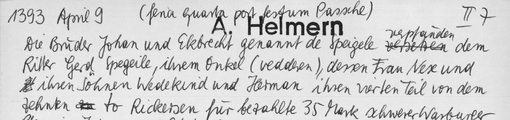 1393 April 9 (feria quarta post festum Pasche) II 7
A. Helmern
verpfänden
Die Brüder Johan und Elebrecht genannt de Speigele versetzen dem
Ritter Gerd Spegele, ihrem Onkel (vedderen), dessen Frau Nese und
ihren Söhnen Wedekind und Herman ihren vierten Teil von dem
Zehnten to Rickersen für bezahlte 35 Mark schwerer Warburger